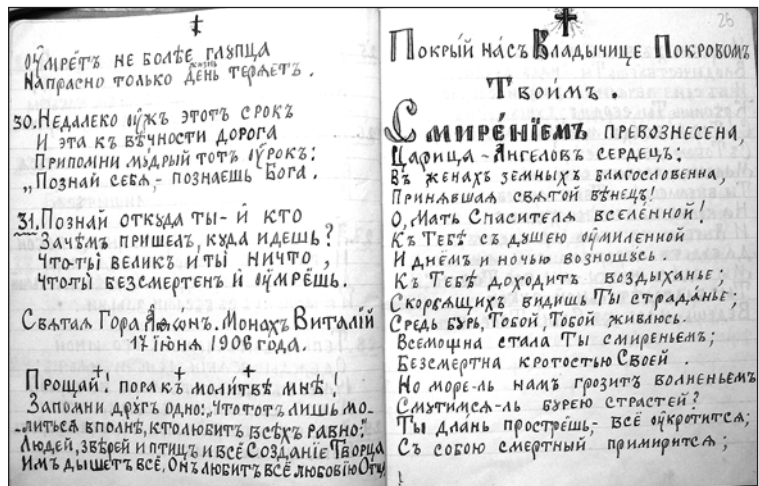 Оумретъ не болѣе глупца
Напрасно только день теряетъ.
жизнь
30. Недалеко оужъ этотъ срокъ
И эта къ вѣчности дорога
Припомни мудрый тотъ оурокъ:
„Познай себя,- познаешь Бога.
31. Познай откуда ты- и кто
Зачѣмъ пришелъ, куда идешь?
Что-ты великъ и ты ничто,
Что-ты безсмертенъ и оумрёшь.
Святая Гора Аѳонъ. Монахъ Виталій
17 іюня 1906 года.
Прощай! пора къ молитвѣ мнѣ,
Запомни другъ одно: „Что тотъ лишь мо-
-литься вполнѣ, кто любитъ всѣхъ равно:
Людей, звѣрей и птицъ и всё Созданіе Творца
Имъ дышетъ всё, Онъ любитъ всё любовію Отца
26
Покрый насъ Владычице Покровомъ
Твоимъ.
Смиреніемъ превознесена,
Царица - Ангеловъ сердецъ:
Въ женахъ земныхъ благословенна,
Принявшая святой вѣнецъ!
О, Мать Спасителя вселенной!
Къ Тебѣ съ душею оумиленной
И днёмъ и ночью возношусь.
Къ Тебѣ доходитъ воздыханье;
Скорбящихъ видишь Ты страданье;
Средь бурь, Тобой, Тобой живлюсь.
Всемощна стала Ты смиреньемъ;
Безсмертна кротостью Своей.
Но море-ль намъ грозитъ волненьемъ
Смутимся-ль бурею страстей?
Ты длань прострёшь,- всё оукротится;
Съ собою смертный примирится;